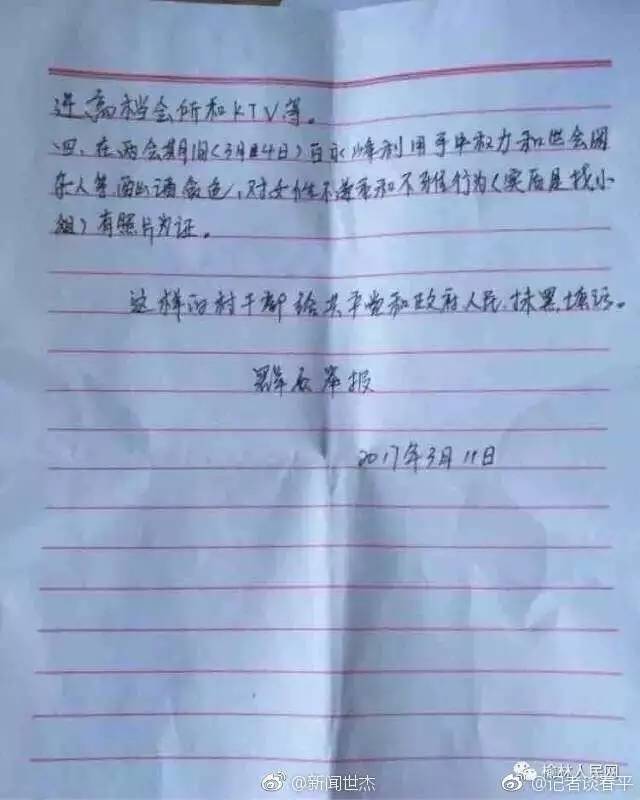 进高档会所和KTV等。
四、在两会期间(3月4日)白永峰利用手中权力和社会闲
杂人等酒山酒食色,对女性不尊重和不雅行为(实后是找小
姐)有照片为证。
这样的村干部给共产党和政府人民抹黑,填污。
群众举报
2017年3月11日
榆林人民网
@新闻世杰
@记者谈春平